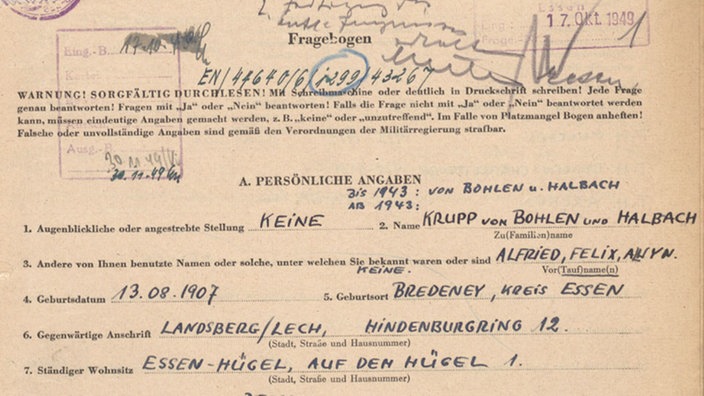 Essen
17. Okt. 1949
Eing.-B.
17.10.49
Fragebogen
EN/47640/6/i299/43267
WARNUNG! SORGFÄLTIG DURCHLESEN! Mit Schreibmaschine oder deutlich in Druckschrift schreiben! Jede Frage
genau beantworten! Fragen mit „Ja“ oder „Nein“ beantworten! Falls die Frage nicht mit „Ja“ oder „Nein“ beantwortet werden
kann, müssen eindeutige Angaben gemacht werden, z. B. „keine“ oder „unzutreffend“. Im Falle von Platzmangel Bogen anheften!
Falsche oder unvollständige Angaben sind gemäß den Verordnungen der Militärregierung strafbar.
Ausg.-B.
30 11 49
30.11.49
A. PERSÖNLICHE ANGABEN
BIS 1943: VON BOHLEN u. HALBACH
AB 1943:
1. Augenblickliche oder angestrebte Stellung KEINE 2. Name KRUPP VON BOHLEN UND HALBACH
Zu(Familien)name
3. Andere von Ihnen benutzte Namen oder solche, unter welchen Sie bekannt waren oder sind ALFRIED, FELIX, ALWYN.
KEINE. Vor(Tauf)name(n)
4. Geburtsdatum 13.08.1907 5. Geburtsort BREDENEY, KREIS ESSEN
6. Gegenwärtige Anschrift LANDSBERG/LECH, HINDENBURGRING 12.
(Stadt, Straße und Hausnummer)
7. Ständiger Wohnsitz ESSEN-HÜGEL, AUF DEM HÜGEL 1.
(Stadt, Straße und Hausnummer)